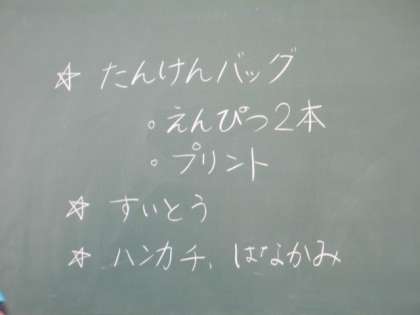 ☆ たんけんバッグ
。えんぴつ2本
。プリント
☆ すいとう
☆ ハンカチ、はながみ